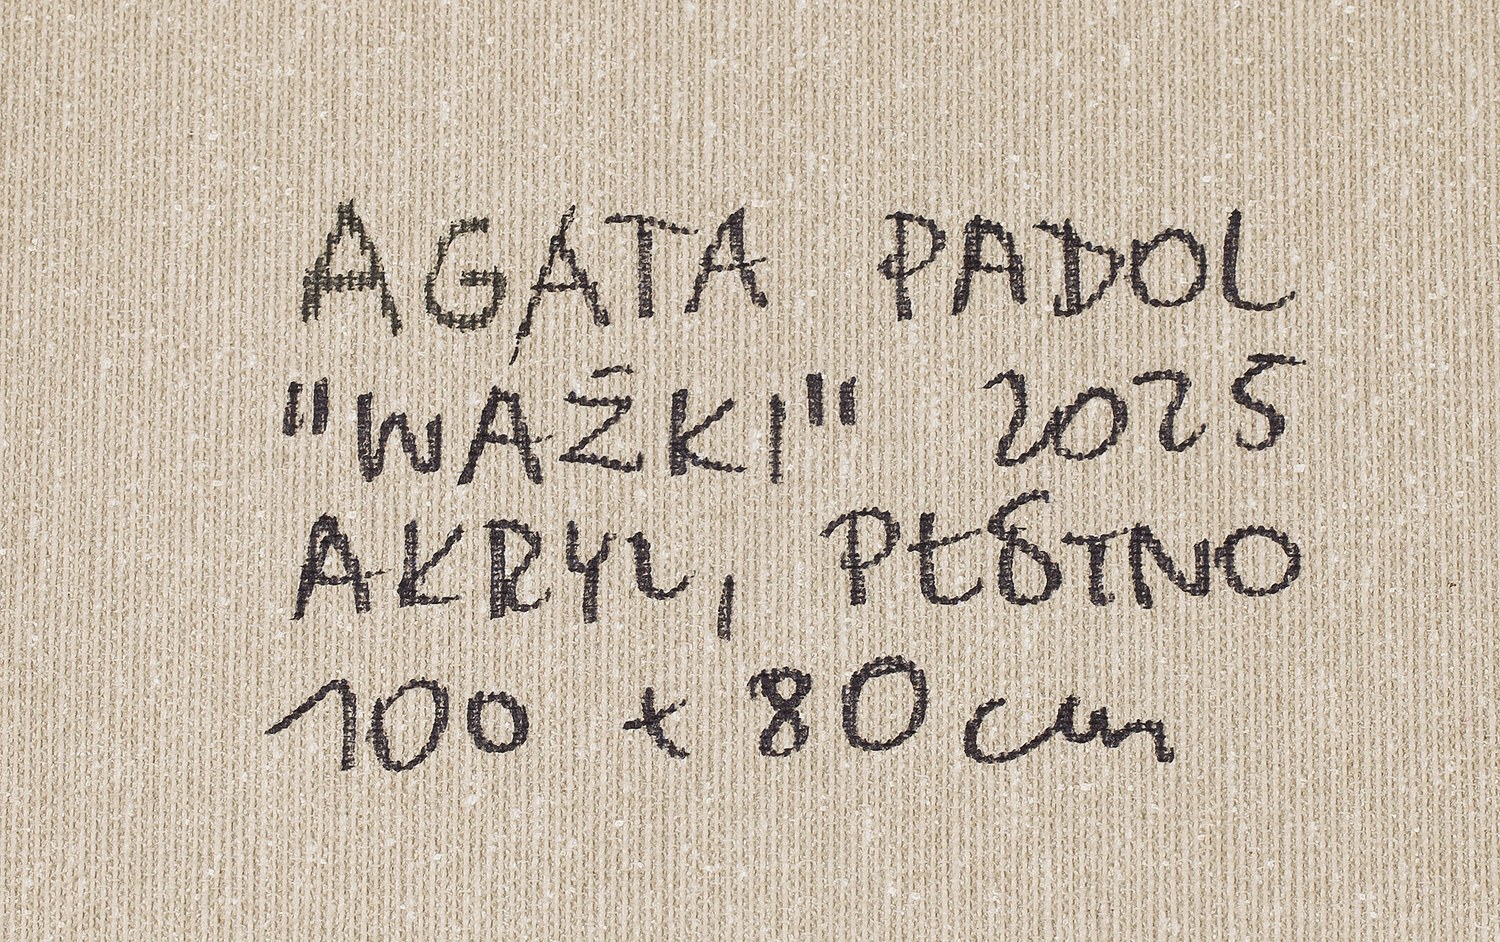 AGATA PADOL
"WAŻKI" 2025
AKRYL, PŁÓTNO
100 x 80 cm